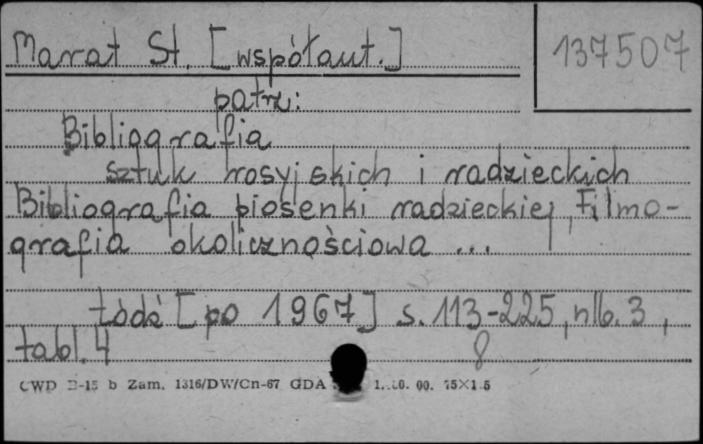 Marat St. [współaut.]
137507
patrz:
Bibliografia
sztuk rosyjskich i radzieckich
Bibliografia piosenki radzieckiej, Filmo-
grafia okolicznościowa ...
Łódź [po 1967] s. 113-225, nlb. 3,
tabl. 4
8
CWD D-15 b Zam. 1316/DW/Cn-67 GDA